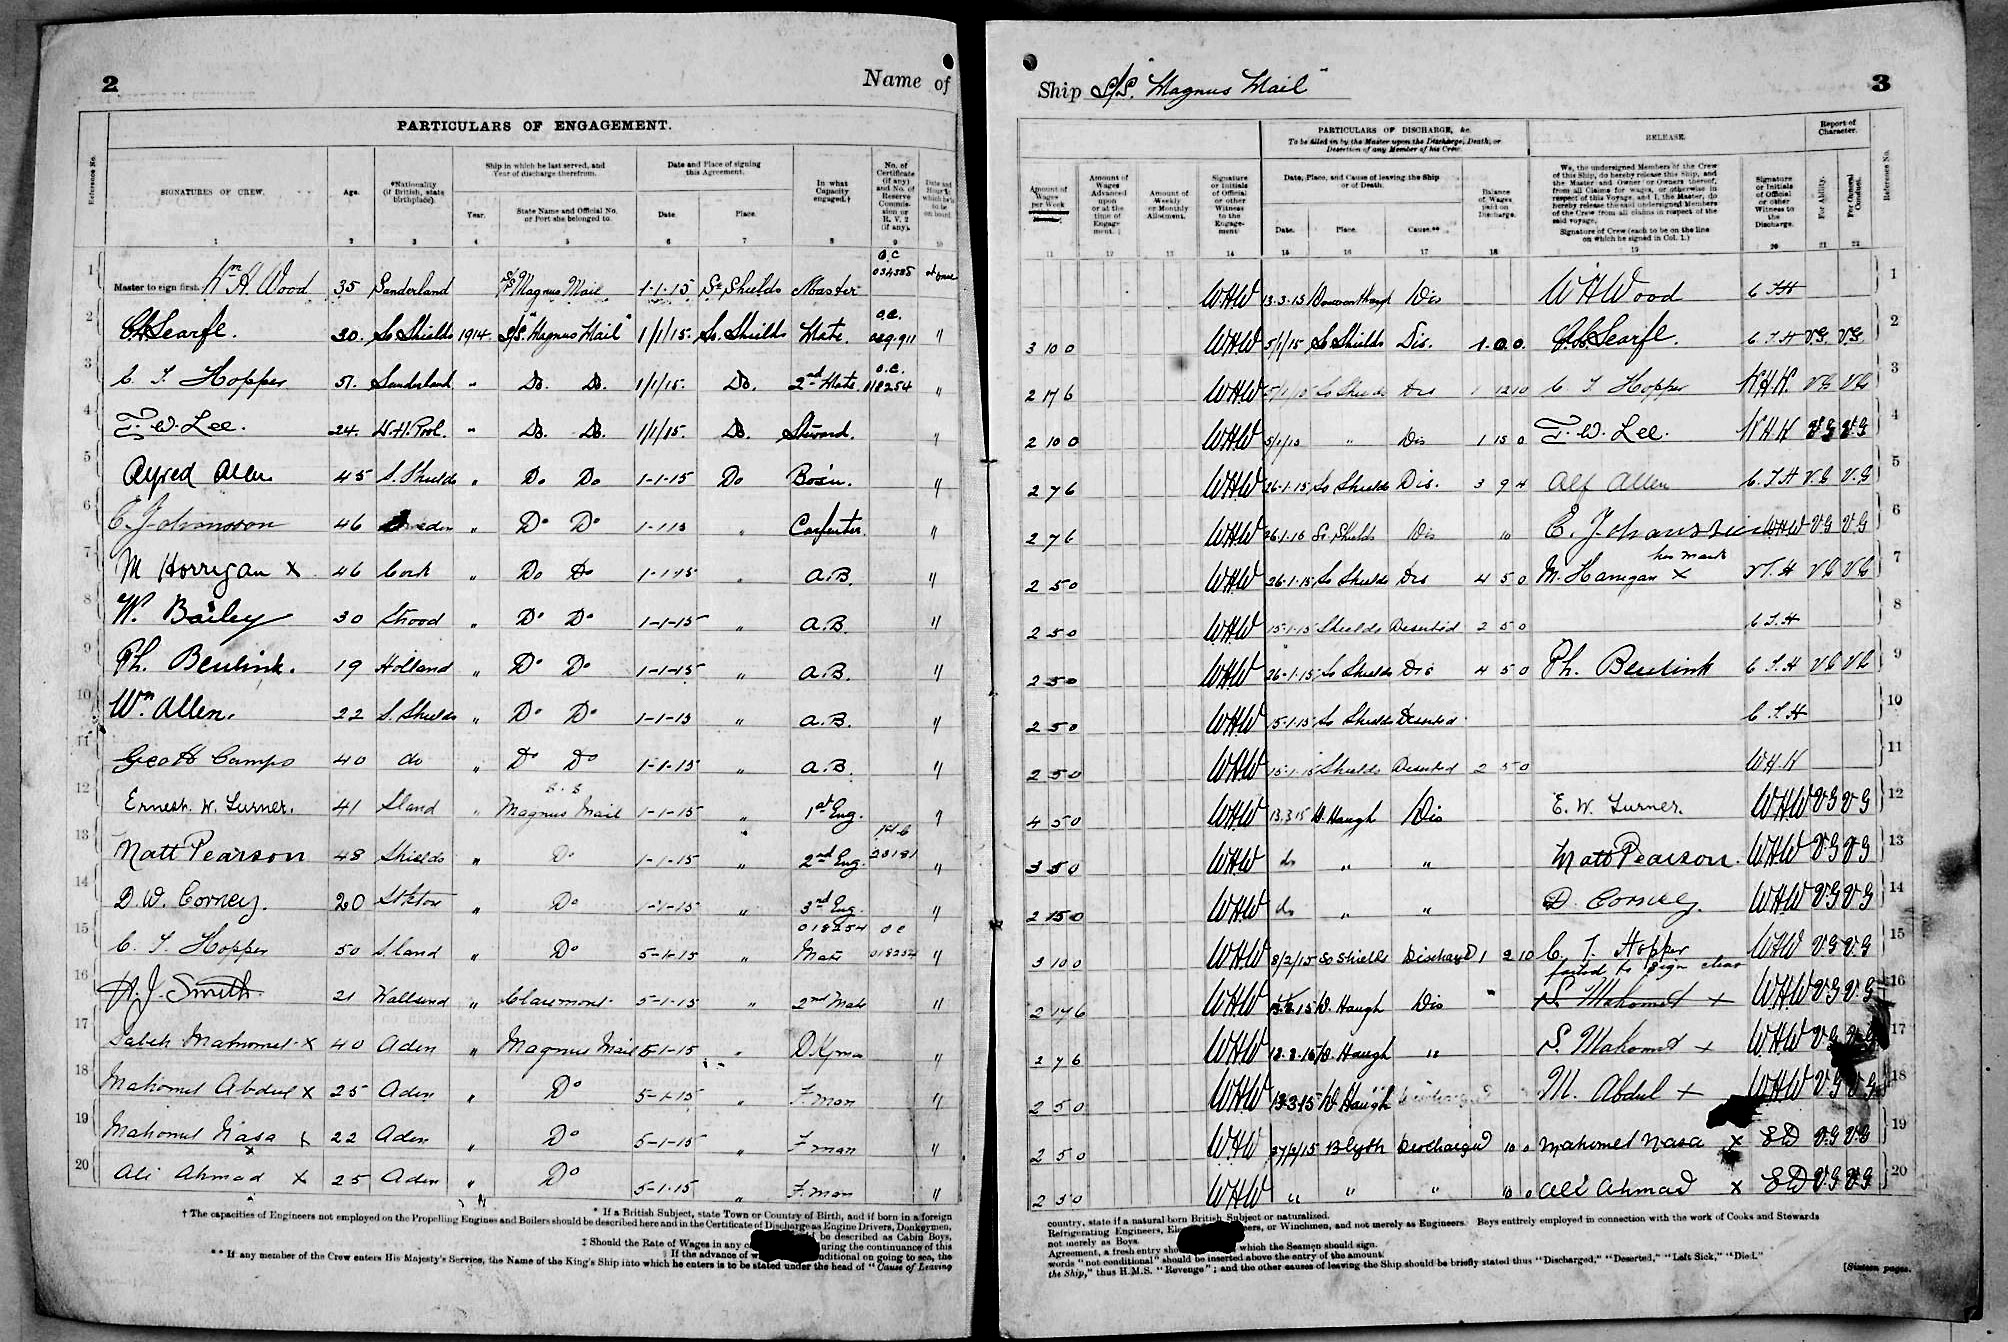 2
Name of
PARTICULARS OF ENGAGEMENT.
Reference No.
SIGNATURES OF CREW.
Age.
*Nationality (if British, state birthplace).
Ship in which he last served, and Year of discharge therefrom.
Year.
State Name and Official No. or Port she belonged to.
Date and Place of signing this Agreement.
Date.
Place.
In what Capacity engaged.†
No. of Certificate (if any) and No. of Reserve Commission or R. V. 2 (if any).
1 2 3 4 5 6 7 8 9 10
1 Master to sign first. Wm H. Wood 35 Sunderland S/S Magnus Mail 1-1-15 So Shields Master O.C 034385 at once
2 Searfe. 30. So Shields 1914. S/S. "Magnus Mail" 1/1/15. So. Shields Mate. O.C. "
3 C T. Hopper 51. Sunderland " Do. Do. 1/1/15. Do. 2nd Mate O.C. 018254 "
4 T. W. Lee. 24. W. H. Pool. " Do. Do. 1/1/15. Do. Steward. "
5 Alfred Allen 45 S. Shields " Do Do 1-1-15 Do Bosin. "
6 C. Johansson 46 Sweden " Do Do 1-1-15 " Carpenter. "
7 M Horrigan x 46 Cork " Do Do 1-1-15 " A.B. "
8 W. Bailey 30 Strood " Do Do 1-1-15 " A.B. "
9 Ph. Beulink. 19 Holland " Do Do 1-1-15 " A.B. "
10 Wm Allen. 22 S. Shields " Do Do 1-1-15 " A.B. "
11 Geo H Camps 40 do " Do Do 1-1-15 " A.B. "
12 Ernest. W. Turner. 41 S.land " S.S Magnus Mail 1-1-15 " 1st Eng. "
13 Matt Pearson 48 Shields " Do 1-1-15 " 2nd Eng. 23181 "
14 D. W. Corney. 20 Stkton " Do 1-1-15 " 3rd Eng. "
15 C. T. Hopper 50 S.land " Do 5-1-15 " 018254 OC Mate 018254 "
16 H. J. Smith. 21 Wallsend " Claremont. 5-1-15 " 2nd Mate "
17 Saleh Mahomet x 40 Aden " Magnus Mail 5-1-15 " D.Kman "
18 Mahomet Abdul x 25 Aden " Do 5-1-15 " F.man "
19 Mahomet Nasa x 22 Aden Do 5-1-15 " F.man "
20 Ali Ahmad x 25 Aden " Do 5-1-15 " F.man "
* If a British Subject, state Town or Country of Birth, and if born in a foreign
† The capacities of Engineers not employed on the Propelling Engines and Boilers should be described here and in the Certificate of Discharge as Engine Drivers, Donkeymen,
be described as Cabin Boys,
‡ Should the Rate of Wages in any uring the continuance of this
§ If the advance of nditional on going to sea, the
** If any member of the Crew enters His Majesty's Service, the Name of the King's Ship into which he enters is to be stated under the head of "Cause of Leaving
Ship S/S. "Magnus Mail"
3
PARTICULARS OF DISCHARGE, &c.
To be filled in by the Master upon the Discharge, Death, or Desertion of any Member of his Crew.
RELEASE.
Report of Character.
Amount of Wages per Week
Amount of Wages Advanced upon or at the time of Engagement.
Amount of Weekly or Monthly Allotment.
Signature or Initials of Official or other Witness to the Engagement
Date, Place, and Cause of leaving the Ship or of Death.
Date.
Place.
Cause.**
Balance of Wages paid on Discharge.
We, the undersigned Members of the Crew of this Ship, do hereby release this Ship, and the Master and Owner or Owners thereof, from all Claims for wages, or otherwise in respect of this Voyage, and I, the Master, do hereby release the said undersigned Members of the Crew from all claims in respect of the said voyage.
Signature of Crew (each to be on the line on which he signed in Col. 1.)
Signature or Initials of Official or other Witness to the Discharge.
For Ability.
For General Conduct.
Reference No.
11 12 13 14 15 16 17 18 19 20 21 22
WHW 13-3-15 Dis W H Wood C T H 1
3 10 0 WHW 5/1/15 So Shields Dis. 1. 0. 0. Searfe. C. T. H V.G. V.G. 2
2 17 6 WHW 5/1/15 So Shields Dis 1 12 10 C T Hopper W.H.W. V.G V.G 3
2 10 0 WHW 5/1/15 " Dis 1 15 0 T. W. Lee. W H W V.G V.G 4
2 7 6 WHW 26-1-15 So Shields Dis. 3 9 4 Alf Allen C. T. H V.G V.G 5
2 7 6 WHW 26-1-15 So Shields Dis 10 C. Johansson WHW V.G V.G 6
his mark
2 5 0 WHW 26-1-15 So Shields Dis 4 5 0 M. Harrigan x V.G V.G 7
2 5 0 WHW 15-1-15 Shields Deserted 2 5 0 C T H 8
2 5 0 WHW 26-1-15 So Shields Dis 4 5 0 Ph. Beulink C T. H V.G V.G 9
2 5 0 WHW 15-1-15 So Shields Deserted C. T. H 10
2 5 0 WHW 15-1-15 Shields Deserted 2 5 0 W.H.W 11
4 5 0 WHW 13.3.15 D. Haugh Dis E. W. Turner. WHW V.G V G 12
3 5 0 WHW do " " Matt Pearson. WHW V.G V G 13
2 15 0 WHW do " " D Corney. WHW V.G V G 14
3 10 0 WHW 8/2/15 So Shields Discharged 1 2 10 C. T. Hopper WHW V G V.G 15
failed to sign clear
2 17 6 WHW D. Haugh Dis S. Mahomet x WHW V G V.G 16
2 7 6 WHW D. Haugh " S. Mahomet x WHW V.G V.G 17
2 5 0 WHW 13-3-15 D. Haugh M. Abdul x WHW V.G V.G 18
2 5 0 WHW 27/2/15 Blyth Discharged 10 0 Mahomet Nasa x SD V.G V.G 19
2 5 0 WHW " " " 10 0 Ali Ahmad x SD V.G V.G 20
country, state if a natural born British Subject or naturalised.
Refrigerating Engineers, Ele ners, or Winchmen, and not merely as Engineers. Boys entirely employed in connection with the work of Cooks and Stewards
not merely as Boys.
Agreement, a fresh entry sho which the Seamen should sign.
words "not conditional" should be inserted above the entry of the amount.
the Ship," thus H.M.S. "Revenge"; and the other causes of leaving the Ship should be briefly stated thus "Discharged," "Deserted," "Left Sick," "Died."
[Sixteen pages.